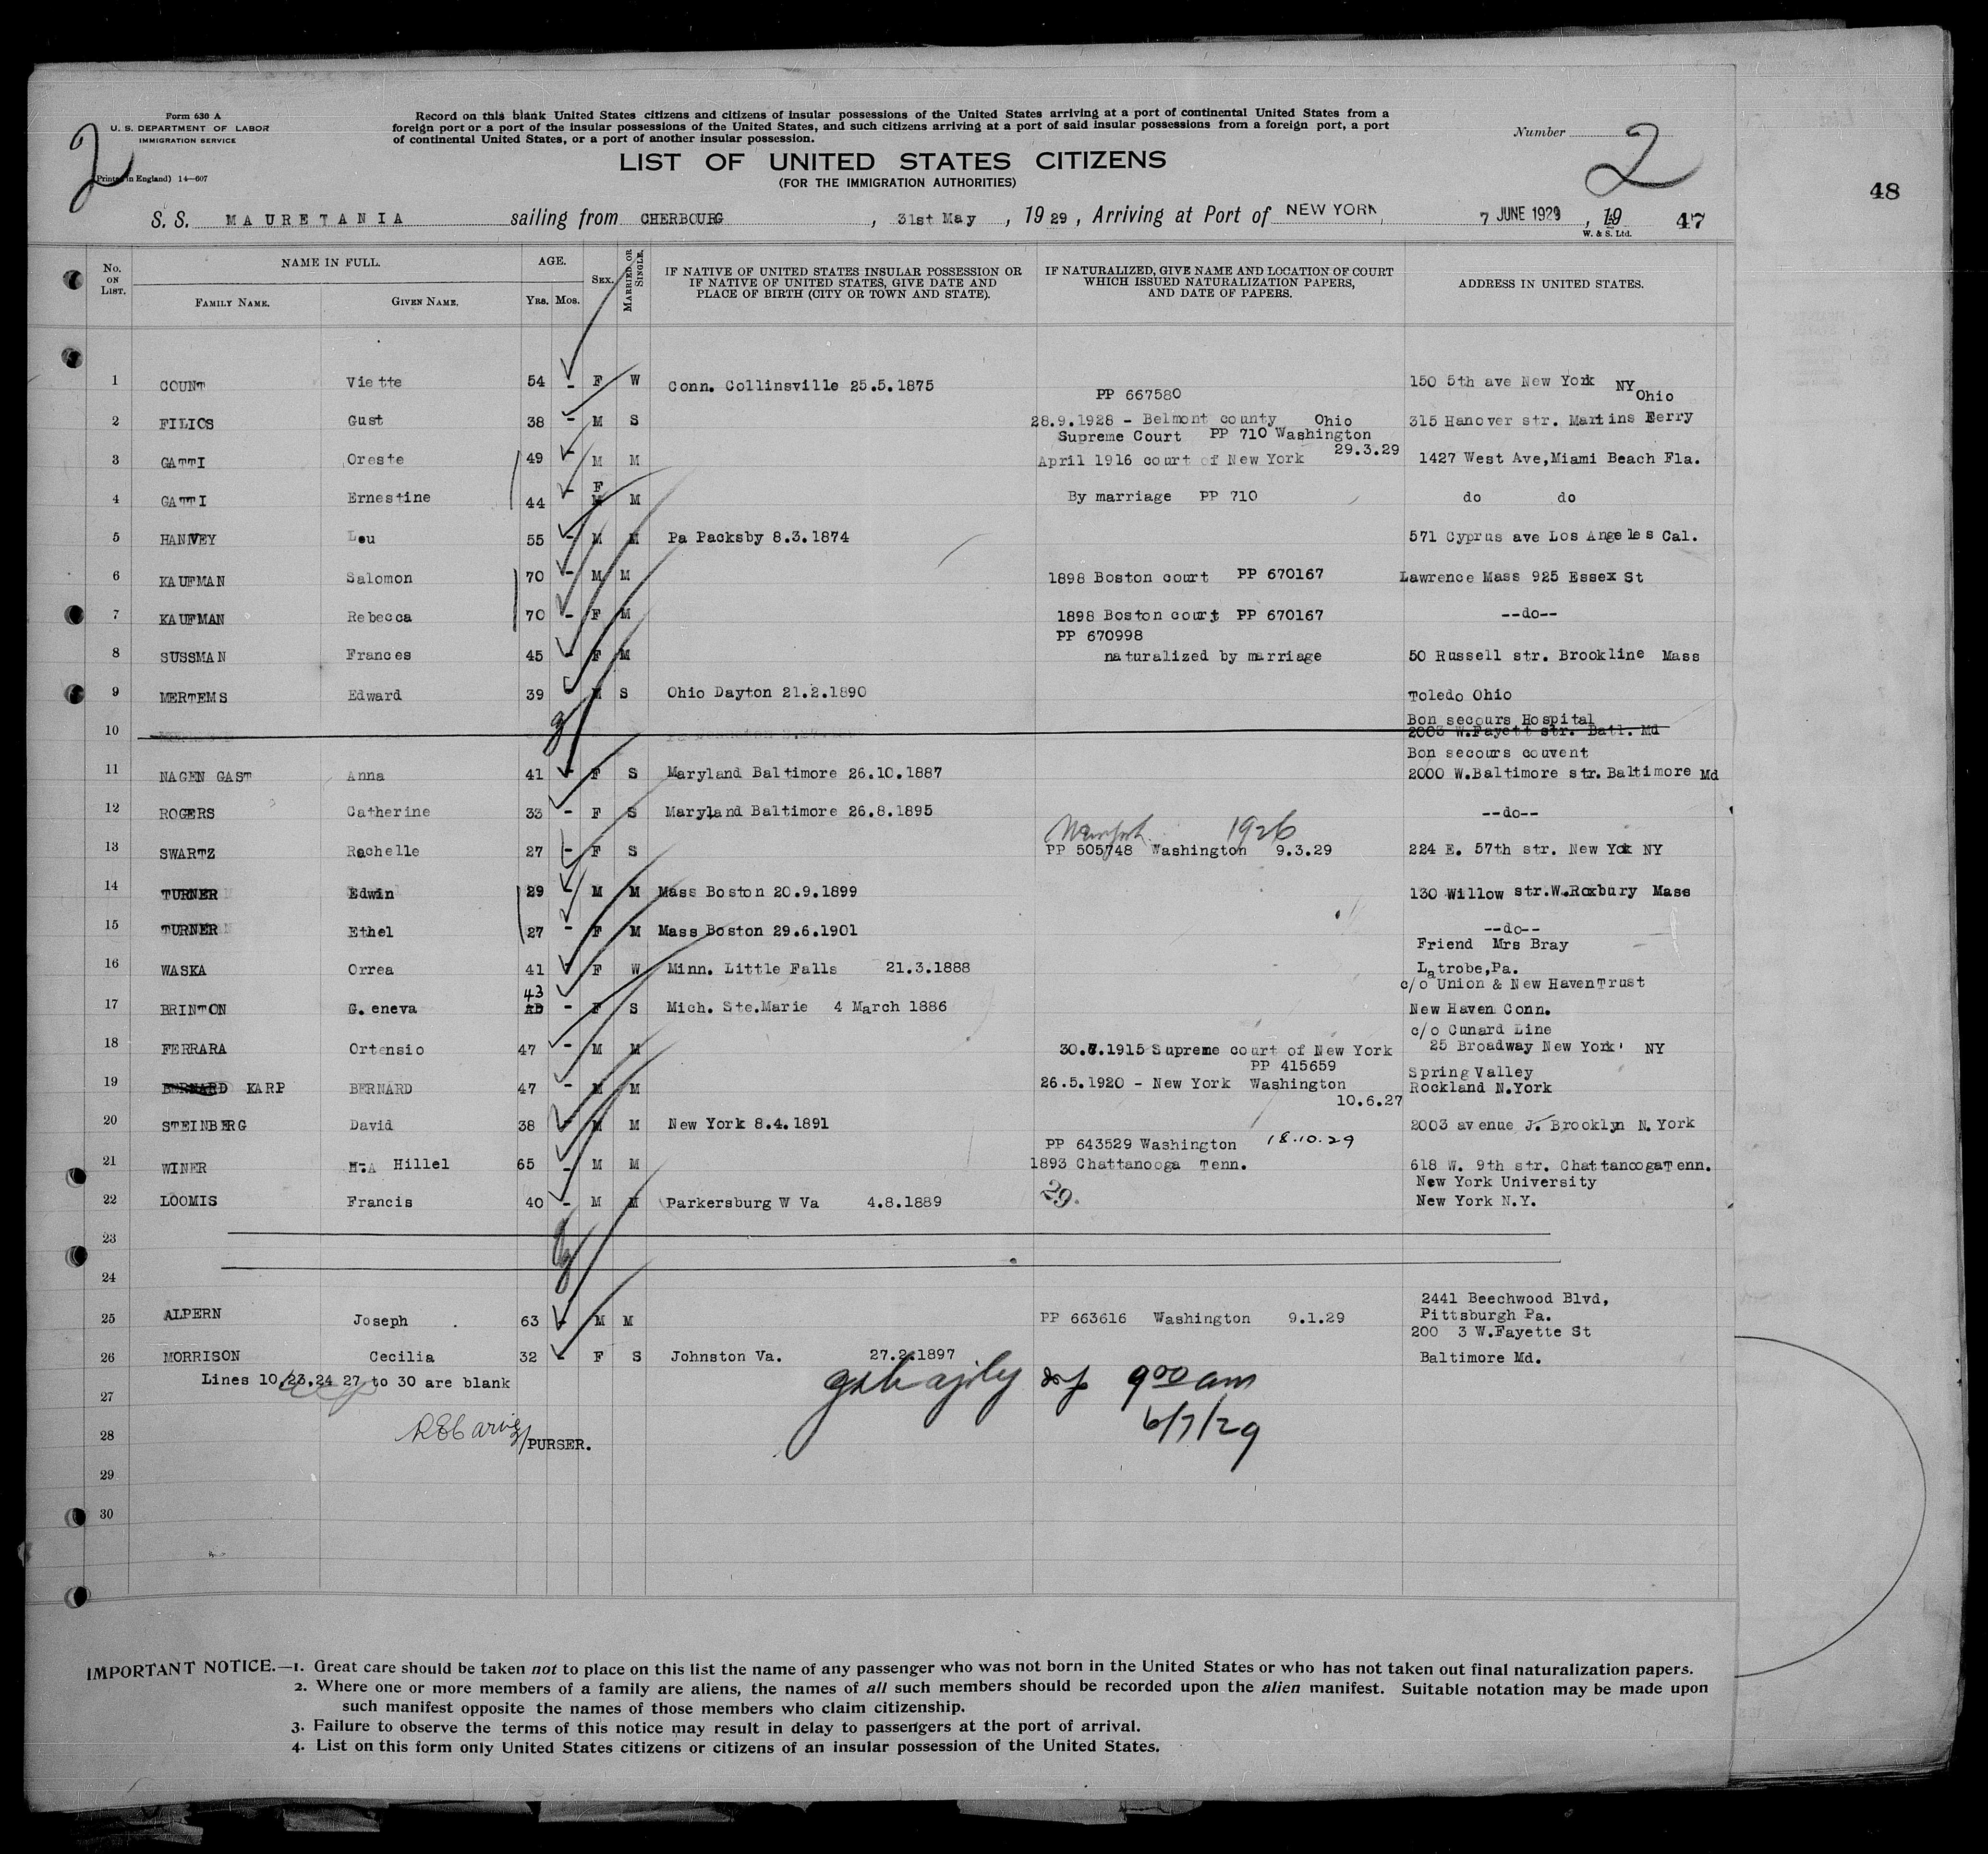 Form 630 A
U. S. DEPARTMENT OF LABOR
IMMIGRATION SERVICE
(Printed in England) 14—607
2
Record on this blank United States citizens and citizens of insular possessions of the United States arriving at a port of continental United States from a
foreign port or a port of the insular possessions of the United States, and such citizens arriving at a port of said insular possessions from a foreign port, a port
of continental United States, or a port of another insular possession.
Number 2
LIST OF UNITED STATES CITIZENS
(FOR THE IMMIGRATION AUTHORITIES)
48
S. S. MAURETANIA sailing from CHERBOURG, 31st May, 1929, Arriving at Port of NEW YORK, 7 JUNE 1929, 19 47
W. & S. Ltd.
No. ON LIST. NAME IN FULL. FAMILY NAME. GIVEN NAME. AGE. YRS. MOS. SEX. MARRIED OR SINGLE. IF NATIVE OF UNITED STATES INSULAR POSSESSION OR IF NATIVE OF UNITED STATES, GIVE DATE AND PLACE OF BIRTH (CITY OR TOWN AND STATE). IF NATURALIZED, GIVE NAME AND LOCATION OF COURT WHICH ISSUED NATURALIZATION PAPERS, AND DATE OF PAPERS. ADDRESS IN UNITED STATES.
1 COUNT Viette 54 - F W Conn. Collinsville 25.5.1875 PP 667580 150 5th ave New York NY
Ohio
2 FILIOS Gust 38 - M S 28.9.1928 - Belmont county Ohio 315 Hanover str. Martins Eerry
Supreme Court PP 710 Washington
29.3.29
3 GATTI Oreste 49 - M M April 1916 court of New York 1427 West Ave,Miami Beach Fla.
4 GATTI Ernestine 44 - F M M By marriage PP 710 do do
5 HANVEY Lou 55 - M M Pa Packsby 8.3.1874 571 Cyprus ave Los Angeles Cal.
6 KAUFMAN Salomon 70 - M M 1898 Boston court PP 670167 Lawrence Mass 925 Essex St
7 KAUFMAN Rebecca 70 - F M 1898 Boston court PP 670167 --do--
PP 670998
8 SUSSMAN Frances 45 - F M naturalized by marriage 50 Russell str. Brookline Mass
9 MERTEMS Edward 39 M S Ohio Dayton 21.2.1890 Toledo Ohio
Bon secours Hospital
10 2003 W.Fayett str. Batl. Md
Bon secours couvent
11 NAGEN GAST Anna 41 - F S Maryland Baltimore 26.10.1887 2000 W.Baltimore str. Baltimore Md
12 ROGERS Catherine 33 - F S Maryland Baltimore 26.8.1895 --do--
New York 1926
13 SWARTZ Rachelle 27 - F S PP 505748 Washington 9.3.29 224 E. 57th str. New York NY
14 TURNER Edwin 29 - M M Mass Boston 20.9.1899 130 Willow str.W.Roxbury Mass
15 TURNER Ethel 27 - F M Mass Boston 29.6.1901 --do--
Friend Mrs Bray
16 WASKA Orrea 41 - F W Minn. Little Falls 21.3.1888 Latrobe,Pa.
c/o Union & New Haven Trust
17 BRINTON G. eneva 43 - F S Mich. Ste.Marie 4 March 1886 New Haven Conn.
c/o Cunard Line
18 FERRARA Ortensio 47 - M M 30.8.1915 Supreme court of New York 25 Broadway New York NY
PP 415659
Spring Valley
19 BERNARD KARP BERNARD 47 - M M 26.5.1920 - New York Washington Rockland N.York
10.6.27
20 STEINBERG David 38 - M M New York 8.4.1891 2003 avenue J. Brooklyn N.York
PP 643529 Washington 18.10.29
21 WINER Hillel 65 - M M 1893 Chattanooga Tenn. 618 W. 9th str. Chattanooga Tenn.
New York University
22 LOOMIS Francis 40 - M M Parkersburg W Va 4.8.1889 29. New York N.Y.
23
24
2441 Beechwood Blvd,
25 ALPERN Joseph 63 - M M PP 663616 Washington 9.1.29 Pittsburgh Pa.
200 3 W.Fayette St
26 MORRISON Cecilia 32 - F S Johnston Va. 27.2.1897 Baltimore Md.
Lines 10,23,24 27 to 30 are blank
900 am
27
6/7/29
28 PURSER.
29
30
IMPORTANT NOTICE.—1. Great care should be taken not to place on this list the name of any passenger who was not born in the United States or who has not taken out final naturalization papers.
2. Where one or more members of a family are aliens, the names of all such members should be recorded upon the alien manifest. Suitable notation may be made upon
such manifest opposite the names of those members who claim citizenship.
3. Failure to observe the terms of this notice may result in delay to passengers at the port of arrival.
4. List on this form only United States citizens or citizens of an insular possession of the United States.